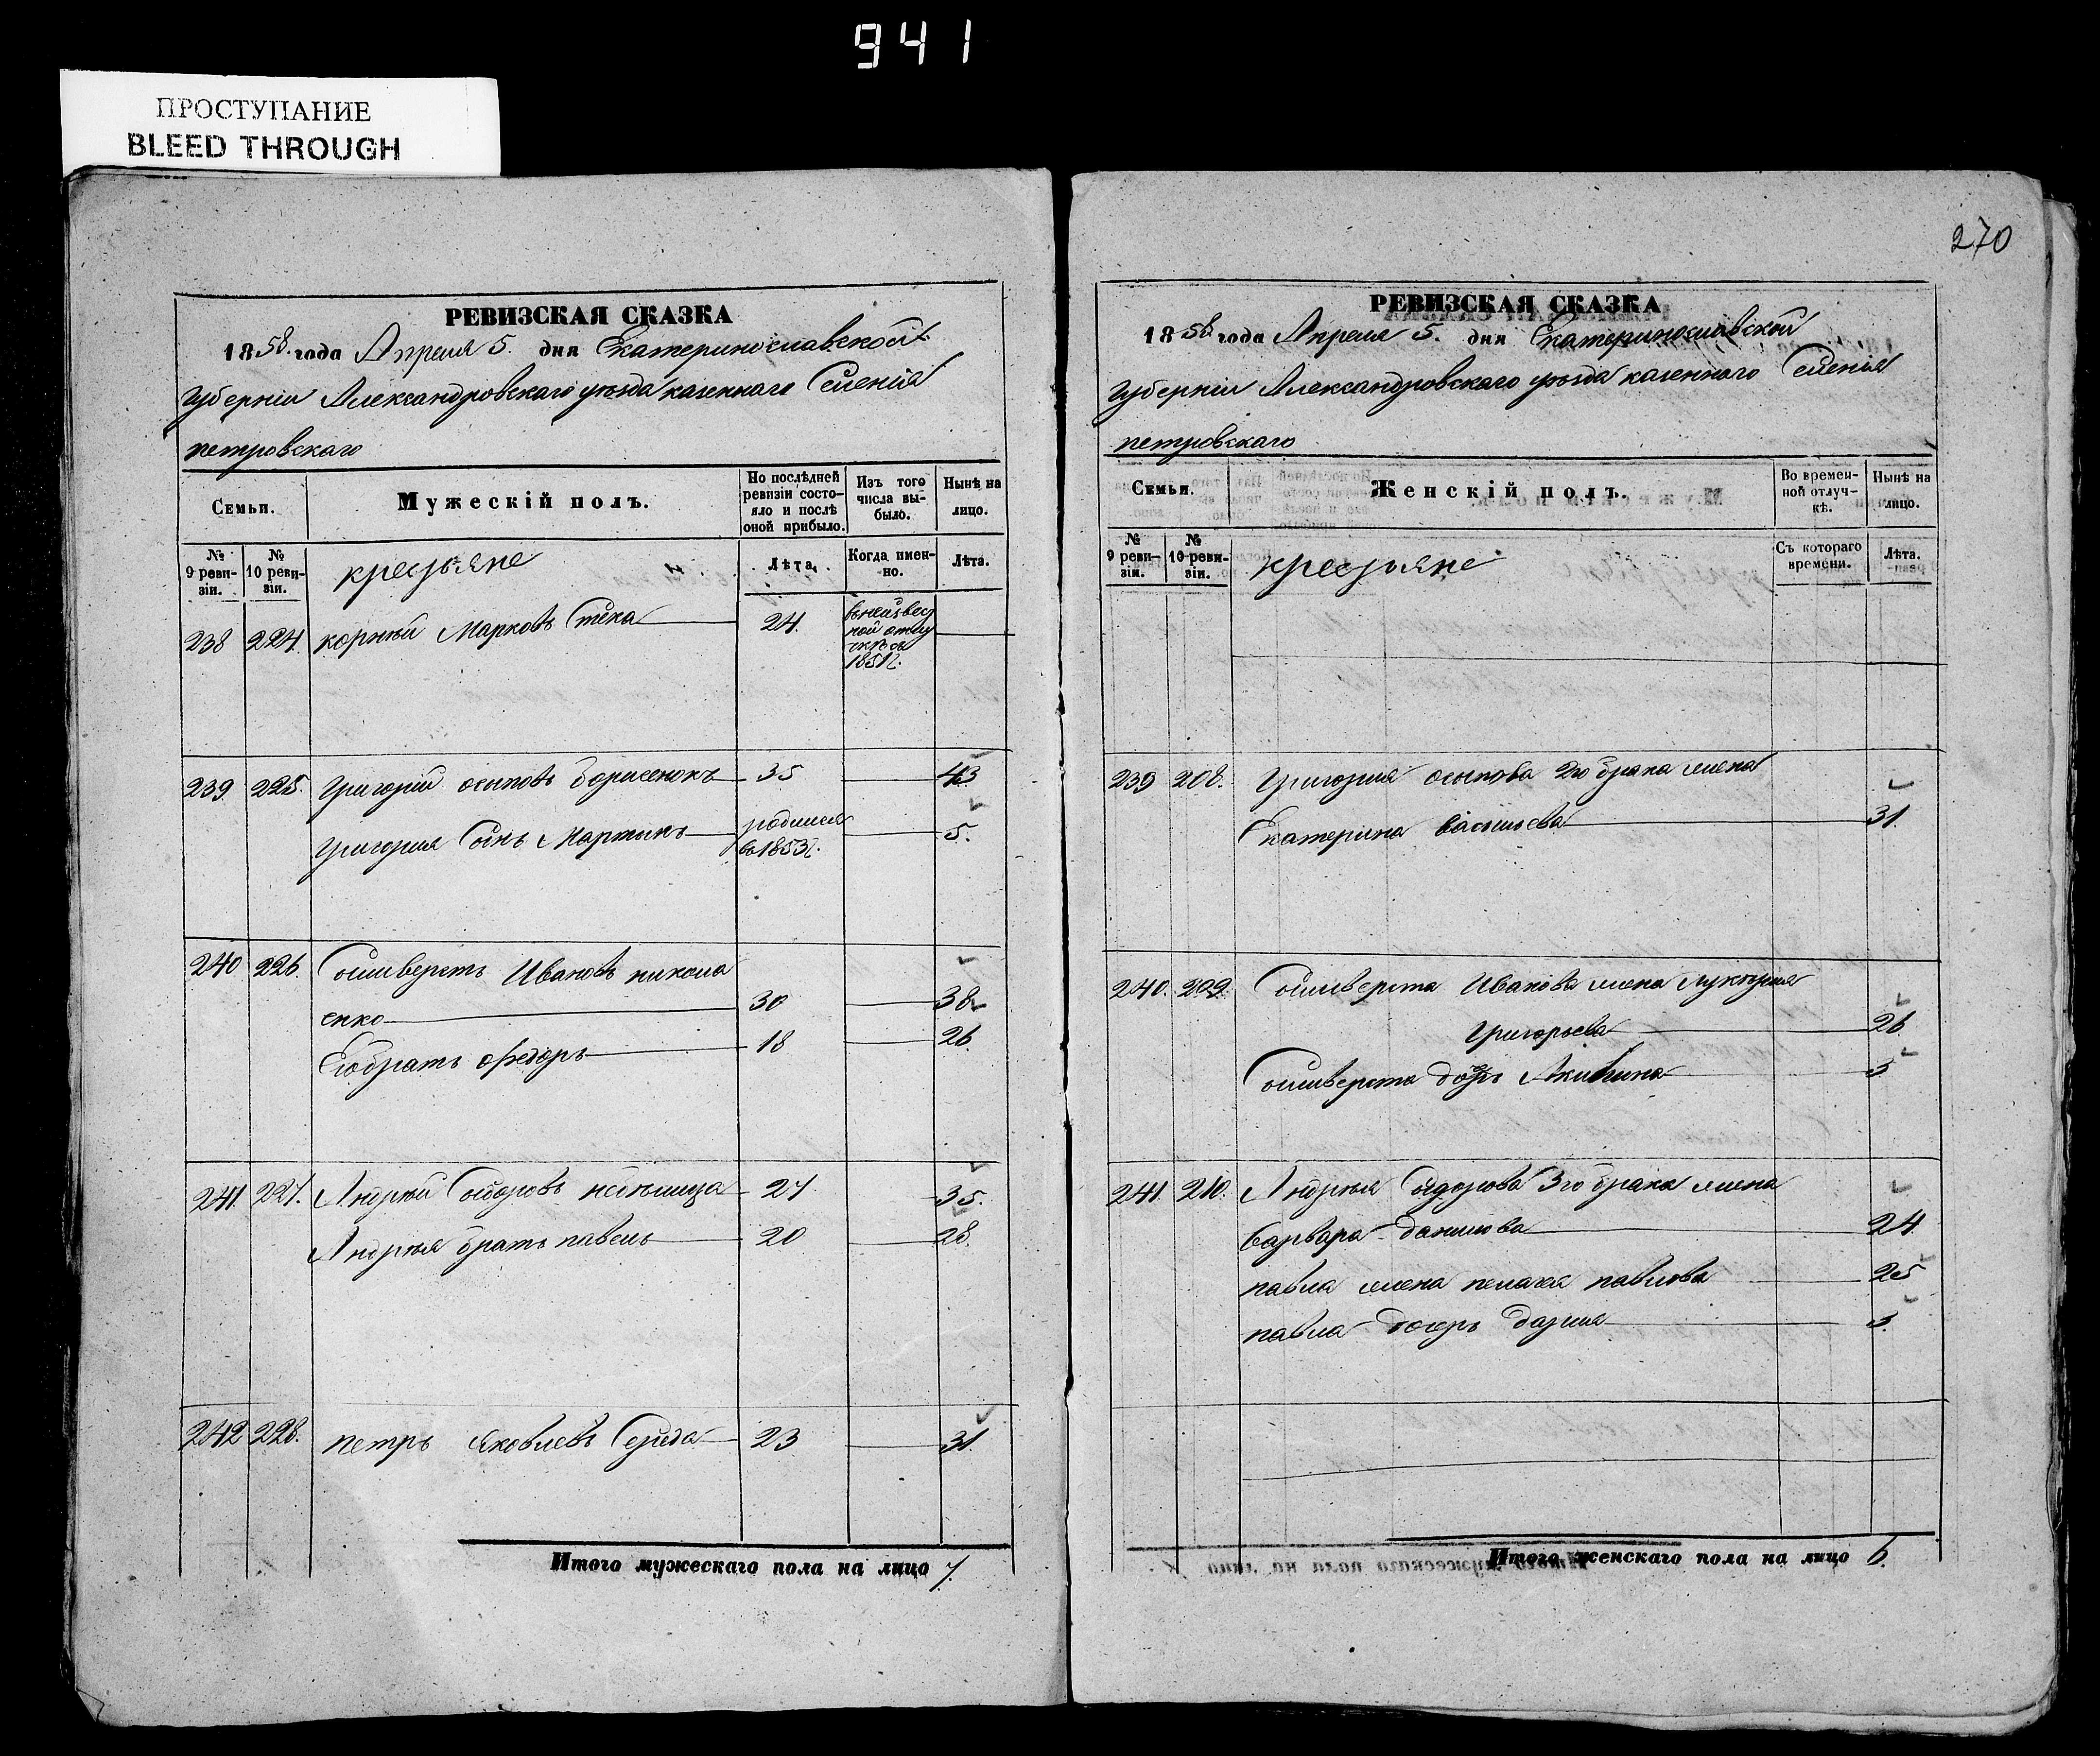 941
ПРОСТУПАНИЕ
BLEED THROUGH
РЕВИЗСКАЯ СКАЗКА
1858. года Апреля 5. дня Екатеринославской
губерніи Александровскаго уѣзда казеннаго Селенія
петровскаго
Семьи.
Мужескій полъ.
По послѣдней ревизіи состояло и послѣ оной прибыло.
Изъ того числа выбыло.
Нынѣ на лицо.
№ 9 ревизіи.
№ 10 ревизіи.
крестьяне
Лѣта.
Когда именно.
Лѣта.
238 224. корнѣй Марковъ 24. 1851г.
239. 225. Григорій осиповъ борисенокъ 35 43
Григорія Сынъ Мартынъ родился во 1853г. 5.
240 226. Селиверстъ Ивановъ никола
енко 30 38
Его братъ Федоръ 18 26
241. 227. Андрѣй Сидоровъ 27 35.
Андрѣя братъ павелъ 20 28.
242 228. петръ Яковлевъ Середа 23 31.
Итого мужескаго пола на лицо 7.
270
РЕВИЗСКАЯ СКАЗКА
1858 года Апреля 5. дня Екатеринославской
губерніи Александровскаго уѣзда казеннаго Селенія
петровскаго
Семьи.
Женскій полъ.
Во временной отлучкѣ.
Нынѣ на лицо.
№ 9 ревизіи.
№ 10 ревизіи.
крестьяне
Съ котораго времени.
Лѣта.
239 208. Григорія осипова 2го брака жена
Екатерина васильева 31.
240. 209. Селиверста Иванова жена лукерія
Григорьева 26
Селиверста дочь Акилина 3
241. 210. Андрѣя Сидорова 3го брака жена
варвара данилова 24.
павла жена пелагея павлова 25
павла дочерь дарія 3.
Итого женскаго пола на лицо 6.